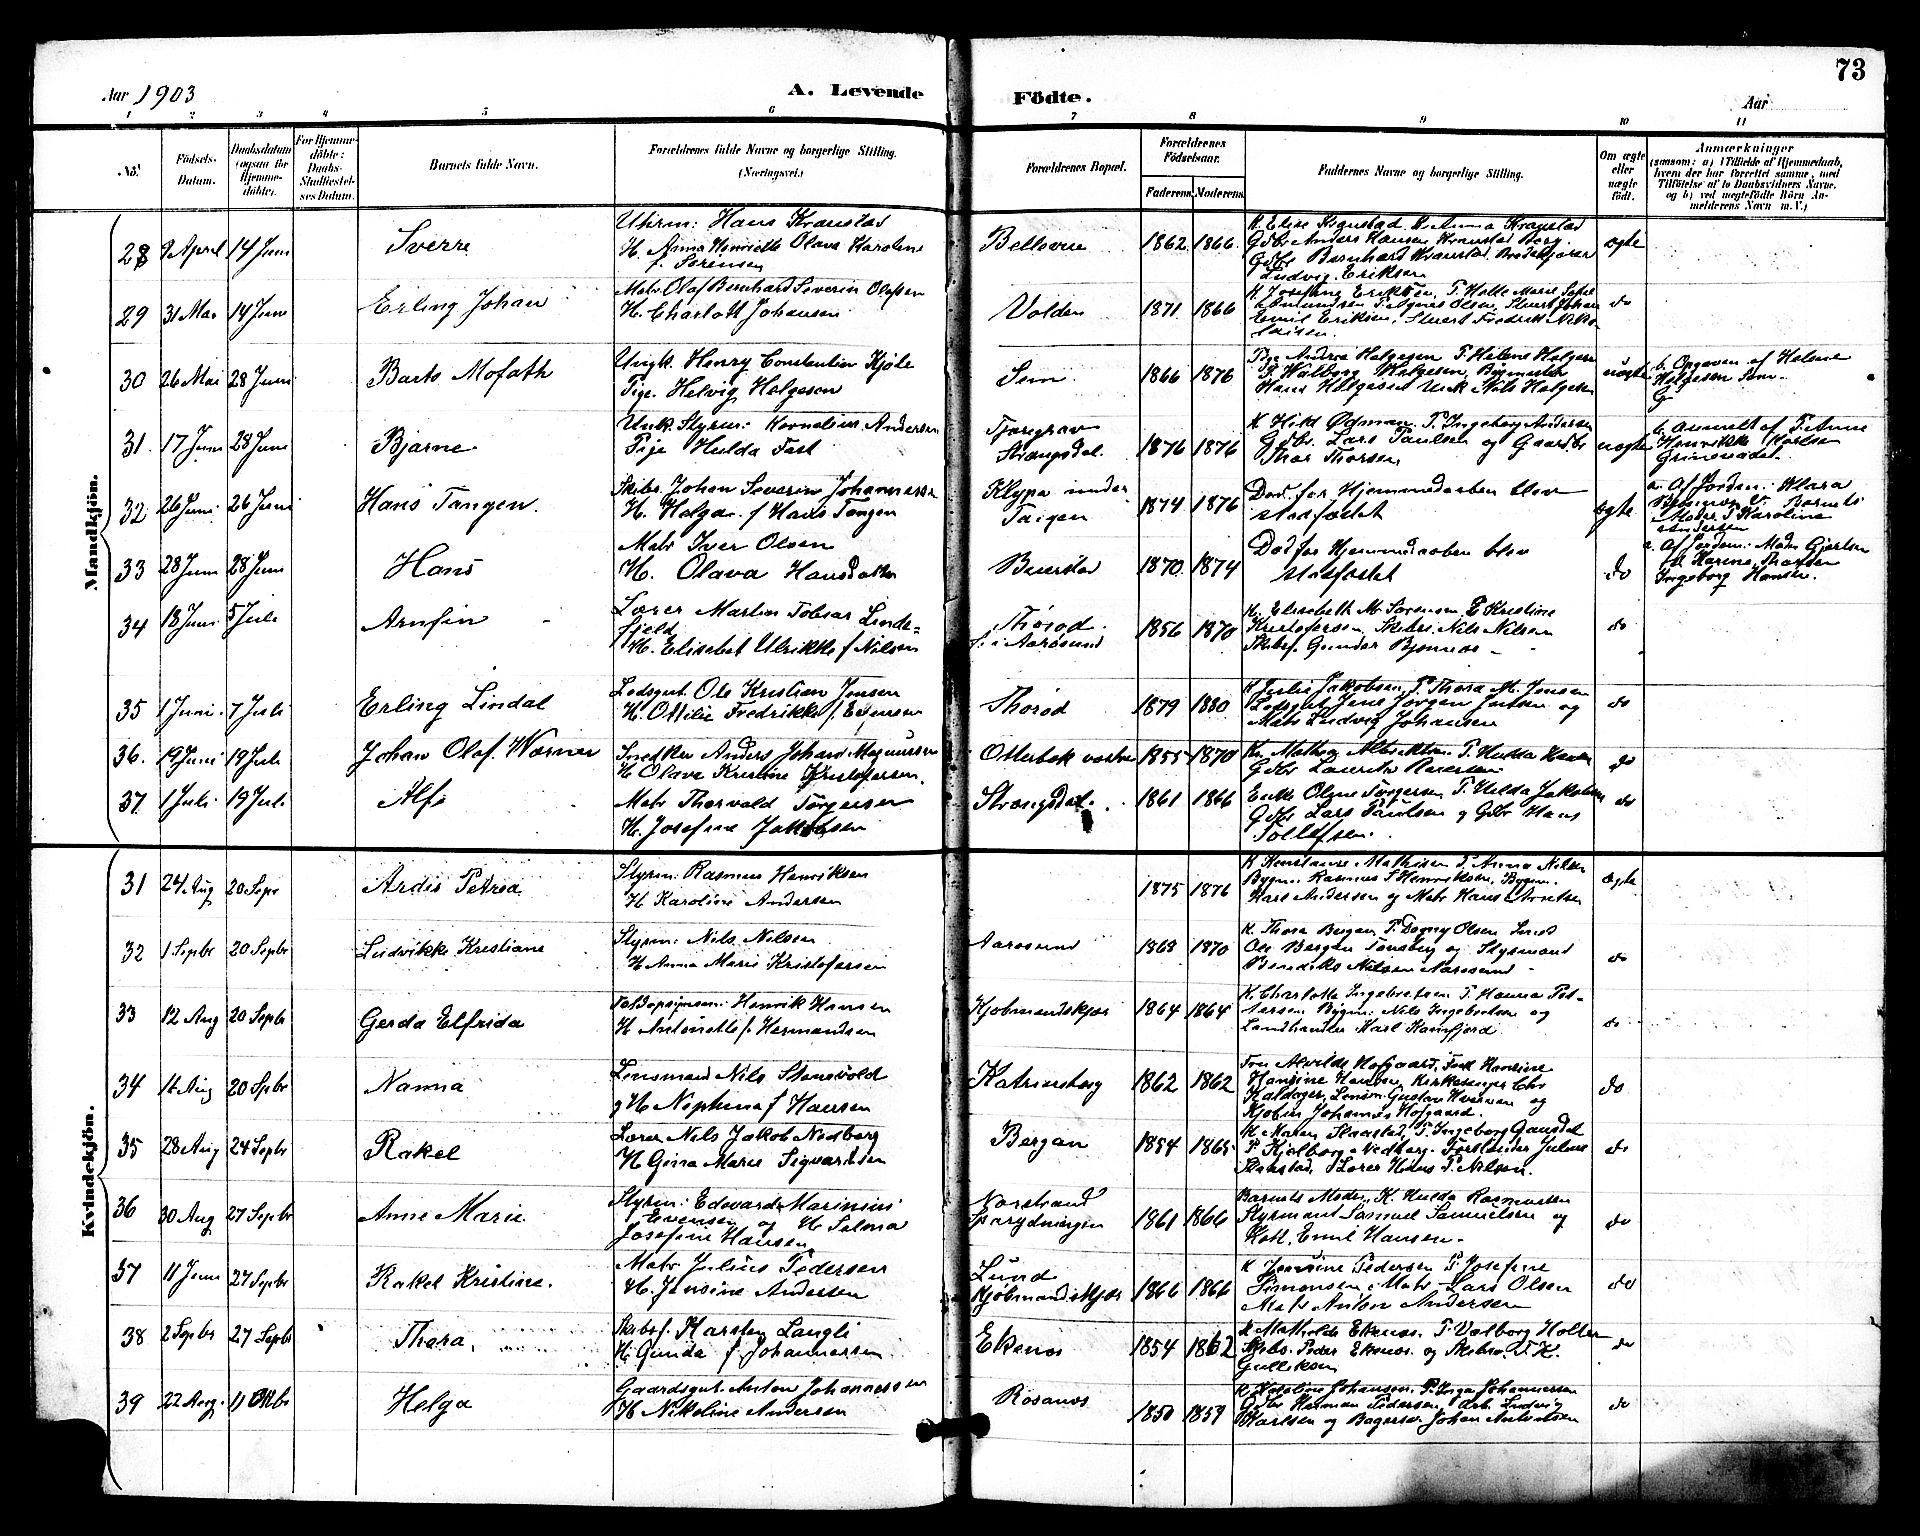 73
Aar 1903
A. Levende
Födte.
Aar
1 2 3 4 5 6 7 8 9 10 11
No.
Födsels-
Datum.
Daabsdatum
(ogsaa for
Hjemme-
döbte).
For Hjemme-
döbte:
Daabs-
Stadfæstel-
ses Datum.
Barnets fulde Navn.
Forældrenes fulde Navne og borgerlige Stilling.
(Næringsvei.)
Forældrenes Bopæl.
Forældrenes
Födselsaar.
Faderens. Moderens.
Faddernes Navne og borgerlige Stilling.
Om ægte
eller
uægte
födt.
Anmærkninger
(saasom: a) i Tilfælde af Hjemmedaab,
hvem der har forrettet samme, med
Tilföielse af to Daabsvidners Navne,
og b) ved uægtefödte Börn An-
melderens Navn m. V.)
Mandkjön.
28 9 April 14 Juni Sverre
Uhrm: Hans Kranstad
H. Anna Henriette Olava Karoline
f. Sørensen
Bellevue 1862 1866
Gdbr Anders Hansen Kranstad Berg.
Gdbr Bernhard Kranstad
Ludvig Eriksen
ægte
29 31 Mai 14 Juni Erling Johan
Matr Olaf Bernhard Severin Olafsen
H. Charlott Johansen
Volden 1871 1866
Emil Eriksen, Stuert Fredrik Niko-
laisen
do
30 26 Mai 28 Juni Barts Mofath
Ungk. Henry Constantin Kjøle
Pige. Helvig Helgesen
Sem. 1866 1876
Pige Andrea Helgesen P. Helene Helgesen
P. Walborg Helgesen, Bygmester
Hans Helgesen Unk Nils Helgesen
uægte
b. Opgaven af Helene
Helgesen Sem.
31. 17 Juni 28 Juni Bjarne
Unk. Styrm: Kornelius Andersen
Pige Hulda Fast
Strængsdal. 1876 1876
K. Hild Ødman. P. Ingeborg Andersen
Gdbr. Lars Paulsen og Gaardbr
Thor Thorsen
uægte
b. anmeldt af P. Anne
Henrikke Karlsen
32 26 Juni 26 Juni Hans Tangen.
Skibsf. Johan Severin Johannessen
H. Helga f. Hans Tangen
Klypa under
Taigen 1874 1876
Død før Hjemmedaaben blev
stadfæstet
ægte
a. Af Jordm: Klara
Moder P. Karoline
Andersen
33 28 Juni 28 Juni Hans
Matr Iver Olsen
H. Olava Hansdatter
1870. 1874
Død før Hjemmedaaben blev
stadfæstet
do
Ingeborg Hansen.
34 18 Juni 5 Juli Arnfin
Lærer Martin Tobias Linde-
fjeld
H. Elisabet Ulrikke f Nilsen
Thorød.
f. i Aarøsund 1856 1870
K. Elisabeth M. Sørensen P. Kristine
Kristofersen, Skibsf. Nils Nilsen
Skibsf. Gunder Bjønnes
do
35 1 Juni 7 Juli Erling Lindal
Lodsgut. Ole Kristian Jensen
H. Ottilie Fredrikke f. Evensen
Thorød 1879 1880
K Julie Jakobsen, P. Thora M. Jensen
Lodsgut Jens Jørgen Jensen og
Matr Ludvig Johansen
do
36. 19 Juni 19 Juli Johan Olaf Werner
Snedker Anders Johan Magnussen
H Olava Kristine Kristofersen.
Otterbæk vestre 1855 1870
do
37. 1 Juli 19 Juli Alf
Matr Thorvald Torgersen
H. Josefine Jakobsen
Strængsdal. 1861 1866
Enke Olgine Torgersen P. Hilda Jakobsen
Gdbr Lars Paulsen og Gdbr Hans
Tollefsen.
do
Kvindekjön.
31 24 Aug 20 Sepr Ardis Petrea
Styrm. Rasmus Henriksen
H Karoline Andersen
1875 1876
K Konstanse Mathisen P. Anna Nilsen
Bygm. Rasmus Henriksen, Bygm.
Karl Andersen og Matr Hans Arntsen
ægte
32 1 Sepbr 20 Sepbr Ludvikke Kristiane
Styrm: Nils Nilsen
H Anna Marie Kristofersen
Aarøsund 1868 1870
K. Thora Bergan P. Dagny Olsen
Ole Bergan Tønsberg og Styrmand
Bendiks Nilsen Aarøsund
do
33 12 Aug 20 Sepbr Gerda Elfrida
Toldopsynsm: Henrik Hansen
H Antoinette f. Hermandsen
Kjøbmandskjær 1864 1864
K. Charlotte Ingebretsen P. Hanna Pet-
tersen Bygm: Nils Ingebretsen og
Landhandler Karl Kamfjord
do
34 16 Aug 20 Spbr Nanna
Lensmand Nils Stensvold
og H Neptuna f Hansen
Katrineborg 1862 1862
Fru Alvilde Hofgaard, Frk Hansine
Hansine Hansen, Kirkesanger Chr
Kaldager, Lensm: Gustav Hvarven og
Kjøbm Johannes Hofgaard.
do
35 28 Aug 24 Sepbr Rakel
Lærer Nils Jakob Nedberg
H Gina Marie Sigvardsen
Bergan 1854 1865
K Maren Staastad, P. Ingeborg Gausdal
P. Kjelborg Nedberg. Forstander Julius
Stakstad, Lærer Hans P. Nilsen.
do
36 30 Aug 27 Sepbr Anne Marie
Styrm: Edvard Marinius
Evensen og H Selma
Josefine Hansen
Norstrand
Sparydningen 1861 1866
Barnets Moder, K. Hulda Rasmussen
Styrmand Samuel Samuelsen og
Emil Hansen
do
37 11 Juni 27 Sepbr Rakel Kristine.
Matr Julius Pedersen
H. Jensine Andersen
Lund
Kjøbmandskjær 1866 1866
K Jensine Pedersen P. Josefine
Simonsen, Matr Lars Olsen
Matr Anton Andersen
do
38 2 Sepbr 27 Sepbr Thora
Skibsf. Karsten Langli
H Gunda f Johannessen
Ekenes 1854 1862
K Mathilde Ekenes. P. Valborg Holter
Skibsr. Peder Ekenes og Skibsr. T. H.
Gulliksen
do
39 22 Aug. 11 Oktbr Helga
Gaardsgut. Anton Johannessen
H Nikoline Andersen
Rosanes 1850 1859
K. Karoline Johansen. P. Inga Johannessen
Gdbr Herman Pedersen, Arb. Ludvig
Karlsen og Bagersv. Johan Antonsen
do